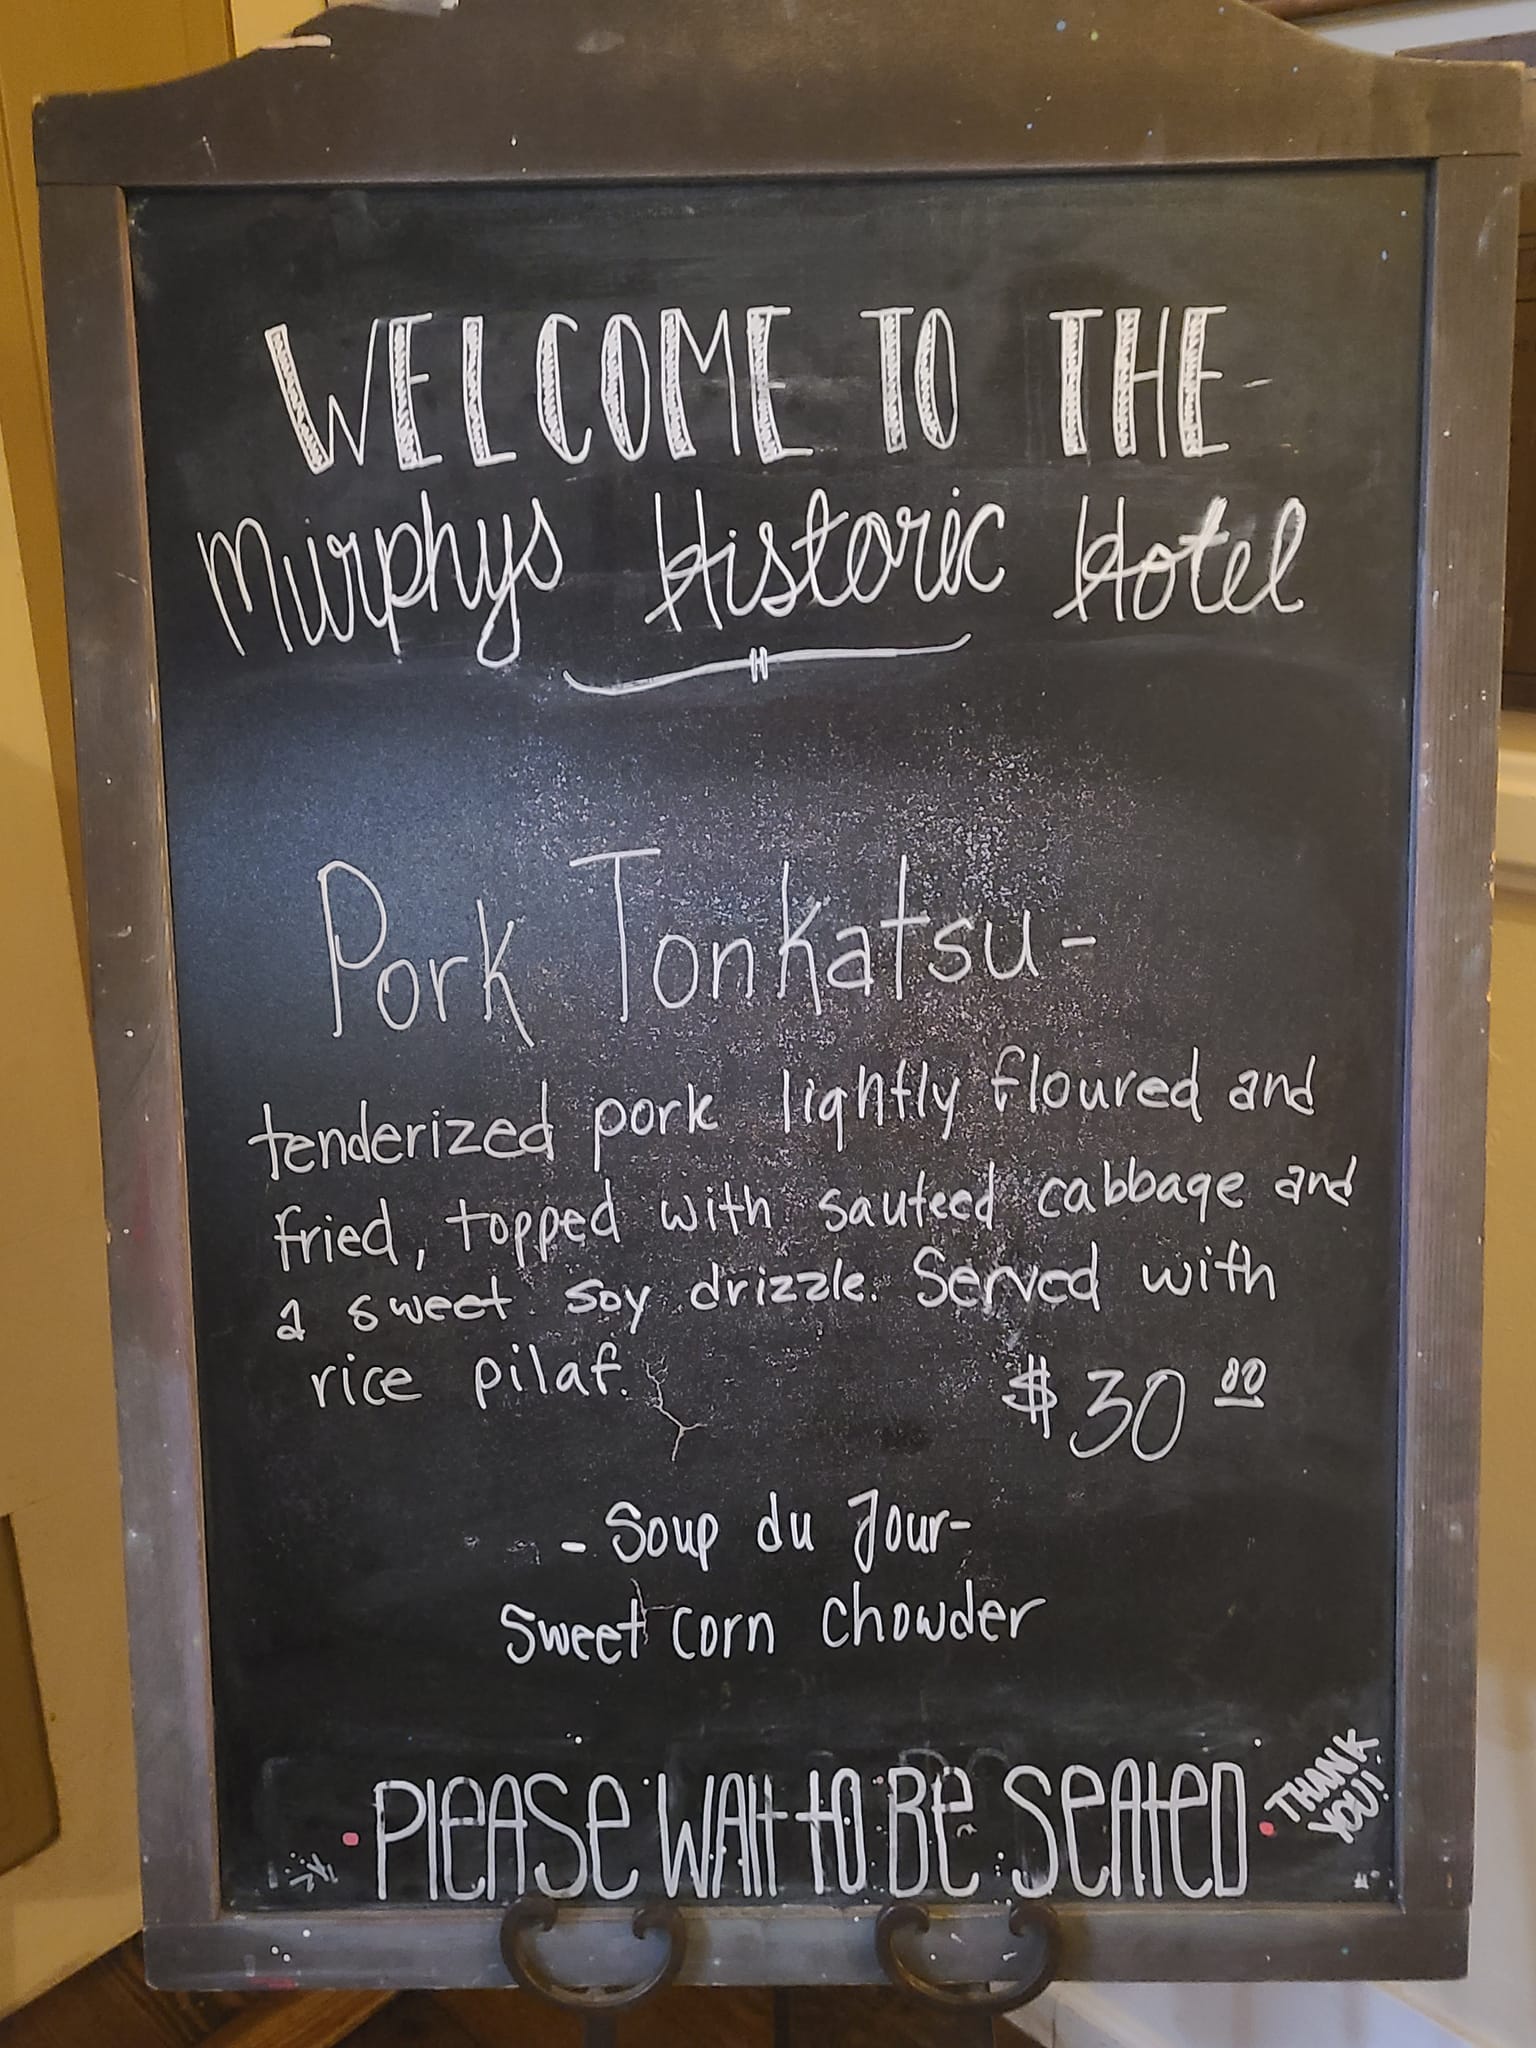 WELCOME TO THE
Murphys Historic Hotel
Pork Tonkatsu-
tenderized pork lightly floured and
fried, topped with sauteed cabbage and
a sweet soy drizzle. Served with
rice pilaf.
$30 00
- Soup du Jour-
Sweet corn chowder
PLEASE WAIT to BE SEATED
THANK
YOU!